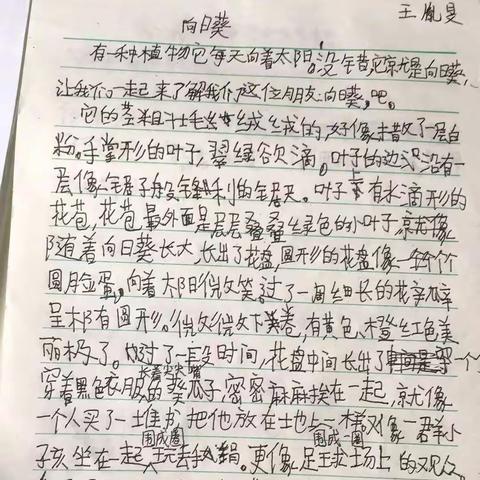 王胤旻
向日葵
有一种植物它每天向着太阳,没错它就是向日葵,
让我们一起来了解我们这位朋友:向日葵,吧。
它的茎粗壮毛绒绒的,好像撒了一层白
粉。手掌形的叶子,翠绿欲滴。叶子的边沿有一
层像锯子般锋利的锯齿。叶子上有水滴形的
花苞,花苞最外面是层层叠叠绿色的小叶子,就像
随着向日葵长大,长出了花盘,圆形的花盘像一个个
圆脸蛋,向着太阳微笑。过了一周细长的花瓣
呈椭圆形。微微下卷,有黄色、橙红色美
丽极了。过了一段时间,花盘中间长出了一个个
穿着黑色衣服的葵瓜子,密密麻麻挨在一起,就像
一个人买了一堆 把他放在土地上一样又像一群小
子孩坐在一起围成圈玩丢手绢。更像足球场上围成一圈的观众。